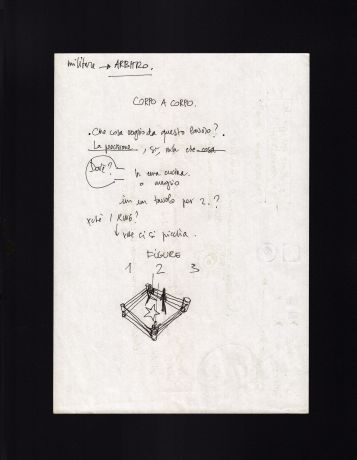 militare → ARBITRO.
CORPO A CORPO.
. Che cosa voglio da questo lavoro?.
La precisione, sì, ma che cosa
Dove? In una cucina
o meglio
in un tavolo per 2.?
xché 1 RING?
↓ xke ci si picchia.
FIGURE
1 2 3